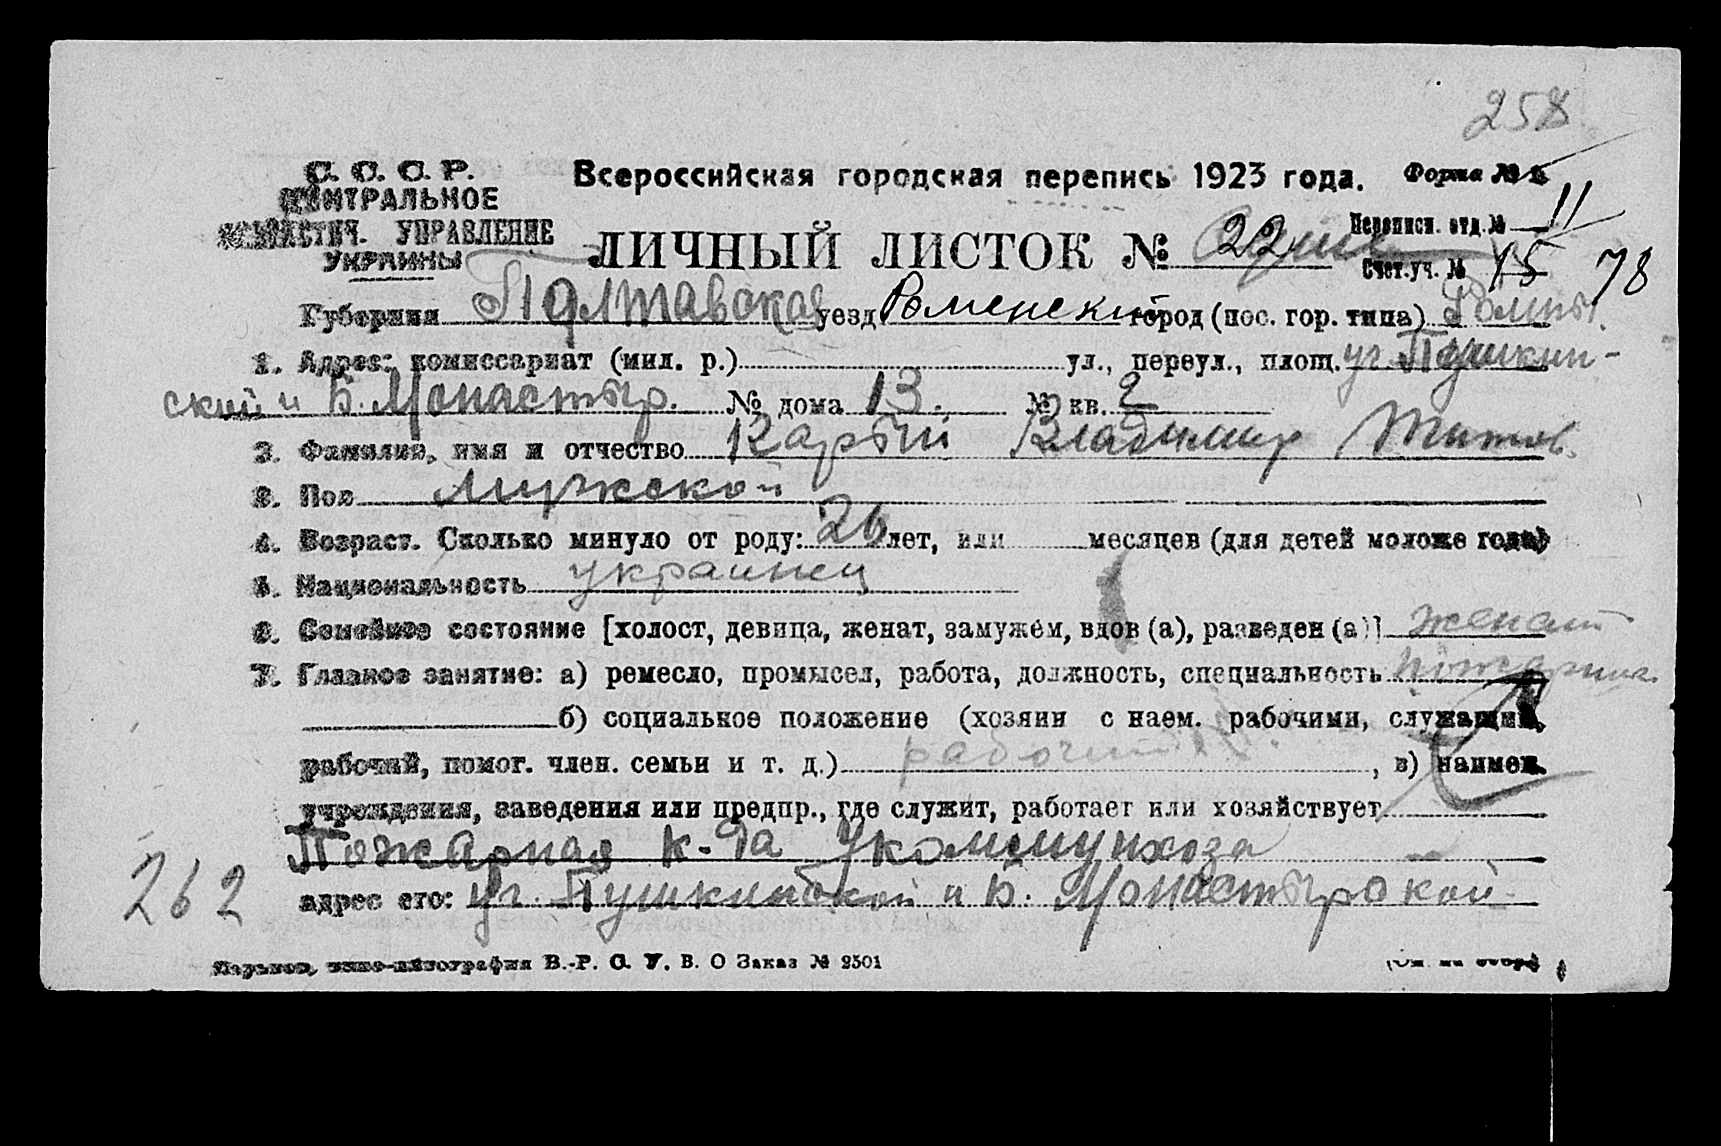 258
С. С. С. Р.
ЦЕНТРАЛЬНОЕ
СТАТИСТИЧ. УПРАВЛЕНИЕ
УКРАИНЫ
Всероссийская городская перепись 1923 года.
Форма №
ЛИЧНЫЙ ЛИСТОК № 22
Переписн. отд. № 11
Счет. уч. № 15 78
Губерния Полтавская уезд Роменский город (пос. гор. типа) Ромны.
1. Адрес: комиссариат (мил. р.) ул., переул., площ. уг. Пушкин-
ской и Б. Монастыр. № дома 13. № кв. 2
2. Фамилия, имя и отчество Карбый Владимир Титов.
3. Пол Мужской
4. Возраст. Сколько минуло от роду: 26 лет, или месяцев (для детей моложе года)
5. Национальность украинец
6. Семейное состояние [холост, девица, женат, замужем, вдов (а), разведен (а)] женат
7. Главное занятие: а) ремесло, промысел, работа, должность, специальность
б) социальное положение (хозяин с наем. рабочими, служащий,
рабочий, помог. член. семьи и т. д.) рабочий , в) наимен.
учреждения, заведения или предпр., где служит, работает или хозяйствует
Пожарная к-да Укоммунхоза
262
адрес его: уг. Пушкинской и Б. Монастырской
Харьков, типо-литография В.-Р. С. У. В. О Заказ № 2501